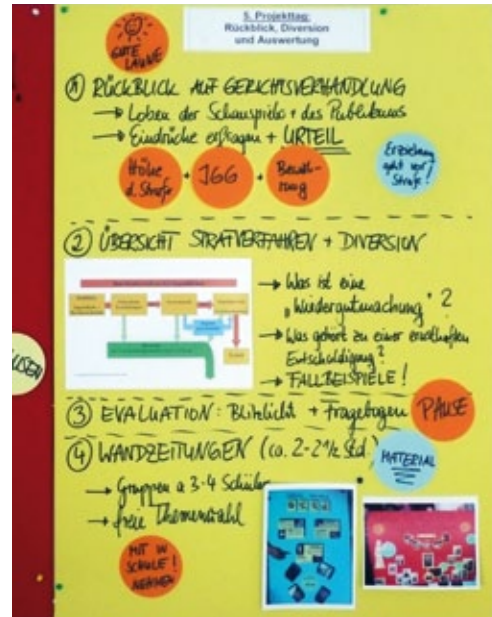 5. Projekttag:
Rückblick, Diversion
und Auswertung
GUTE
LAUNE
① RÜCKBLICK AUF GERICHTSVERHANDLUNG
→ Loben der Schauspieler + des Publikums
→ Eindrücke erfragen + URTEIL
Höhe
d. Strafe
+ JGG +
Bewäh-
rung
Erziehung
geht vor
Strafe!
② ÜBERSICHT STRAFVERFAHREN + DIVERSION
→ Was ist eine
„Wiedergutmachung"?
→ Was gehört zu einer ernsthaften
Entschuldigung?
→ FALLBEISPIELE!
③ EVALUATION: Blitzlicht + Fragebogen
PAUSE
④ WANDZEITUNGEN (ca. 2-2½ Std.)
MATERIAL
→ Gruppen a 3-4 Schüler
→ freie Themenwahl
MIT IN
SCHULE!
NEHMEN
USEN